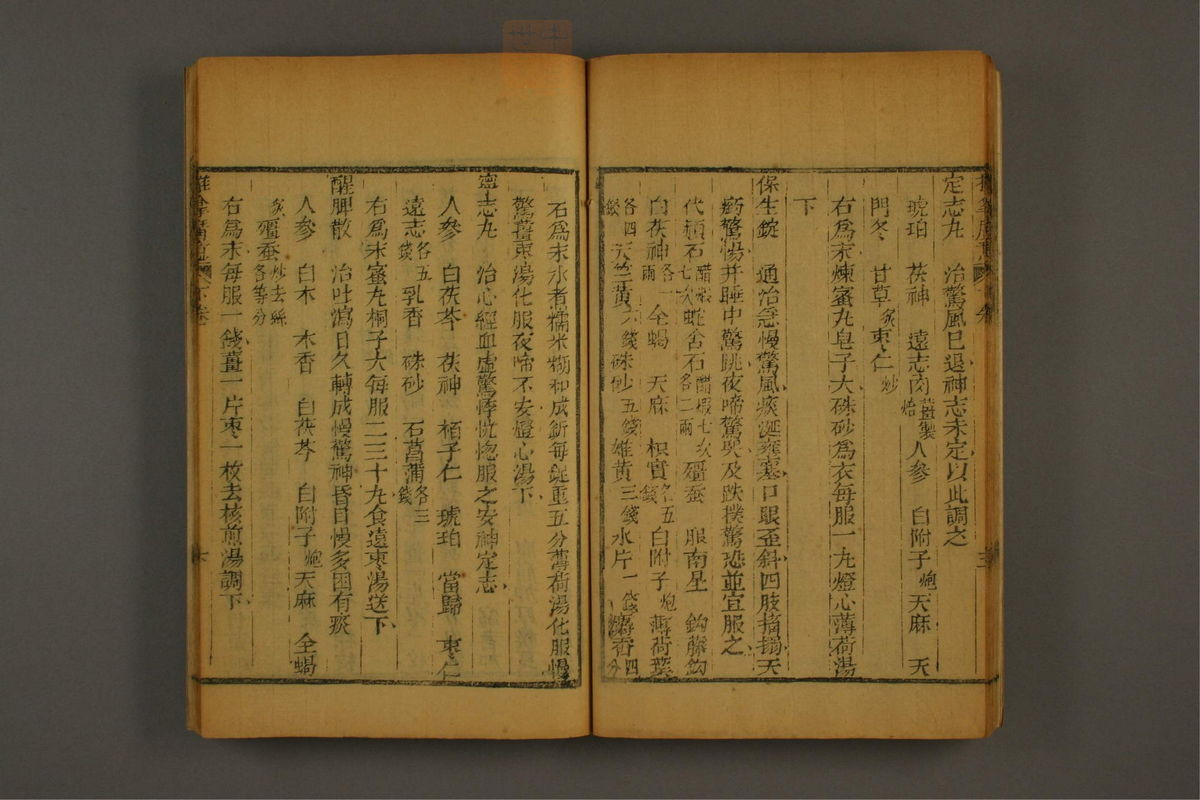 定志丸　治驚風已退神志未定以此調之
琥珀　茯神　遠志肉薑製焙人參　白附子炮天麻　天
門冬　甘草炙棗仁炒
右為末煉蜜丸皂子大硃砂為衣每服一丸燈心薄荷湯
下
保生錠　通治急慢驚風痰涎壅塞口眼歪斜四肢搐搦天
驚惕并睡中驚跳夜啼驚哭及跌撲驚恐並宜服之
代赭石醋七次蛇含石醋煆七次各二兩殭蠶　南星　鈎藤鈎
白茯神各一兩全蝎　天麻　枳實各五錢白附子炮薄荷葉
各四錢天竺黃六錢硃砂五錢雄黃三錢水片一錢麝香四分
石為末水煮糯米糊和成錠每錠重五分薄荷湯化服慢
驚薑棗湯化服夜啼不安燈心湯下
寧志丸　治心經血虛驚悸恍惚服之安神定志
人參　白茯苓　茯神　栢子仁　琥珀　當歸　棗仁
遠志各五錢乳香　硃砂　石菖蒲各三錢
右為末蜜丸桐子大每服二三十丸食遠棗湯送下
醒脾散　治吐瀉日久轉成慢驚神昏目慢多困有痰
人參　白木　木香　白茯苓　白附子炮天麻　全蝎
炙殭蚕炒去絲各等分
右為末每服一錢薑一片棗一枚去核煎湯調下